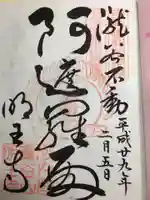 瀧谷不動
平成廿九年
二月五日
阿遮羅
明王寺